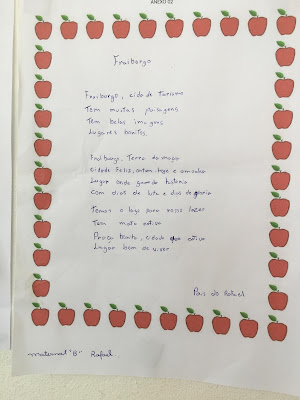 ANEXO 02
Fraiburgo
Fraiburgo, cidade Turismo
Tem muitas paisagens
Tem belas imagens
Lugares bonitos.
Fraiburgo, Terra da maçã
Cidade Feliz, ontem, hoje e amanhã
Lugar onde guarda história
Com dias de luta e dias de glória
Temos o lago para nosso lazer
Tem mata nativa
Praça bonita, cidade ativa
Lugar bom de viver
Pais do Rafael
maternal "B" Rafael.